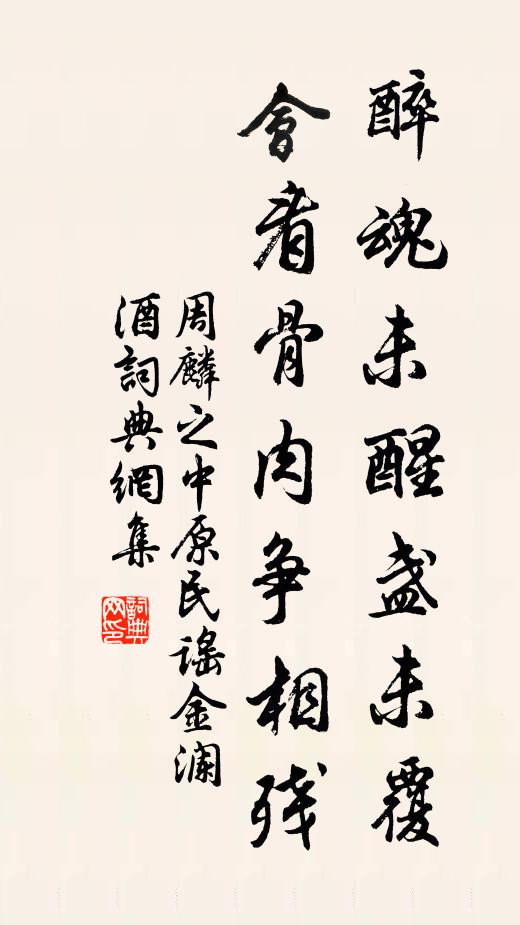 醉魂未醒盏未覆
會看骨肉争相残
周麟之中原民謠金澜
酒詞典網集
詞典网印